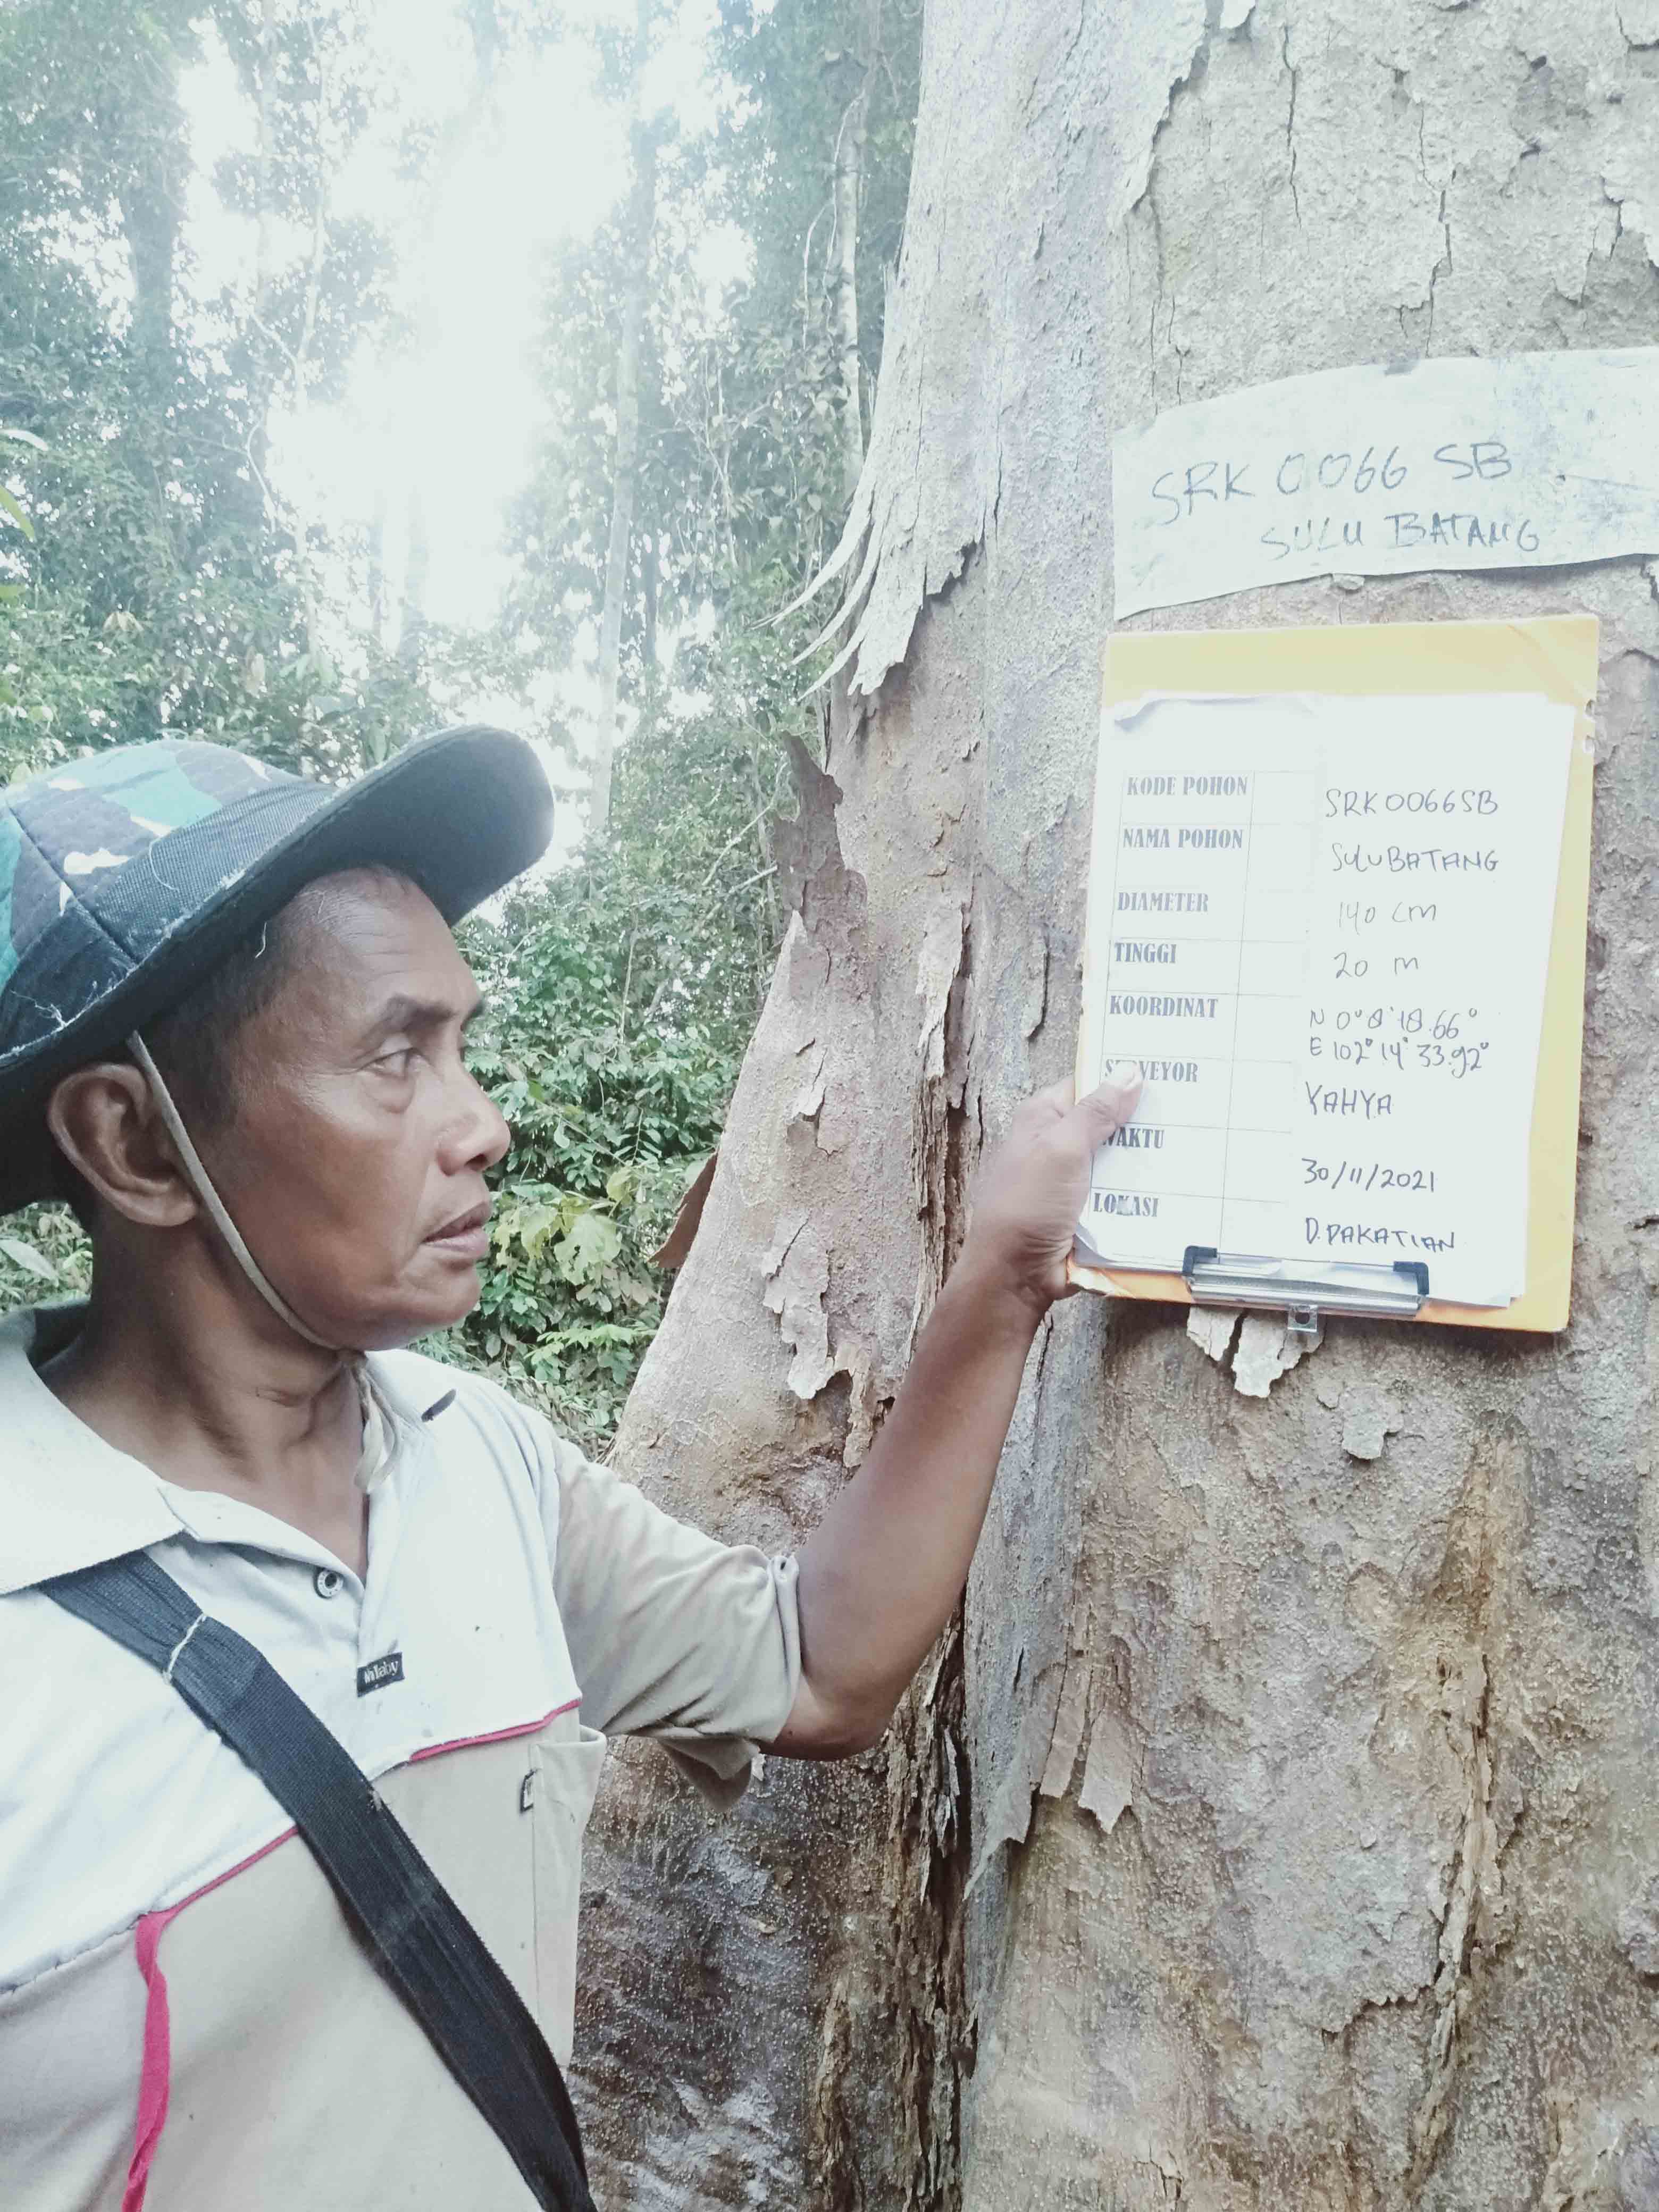 SRK 0066 SB
SULU BATANG
KODE POHON SRK0066SB
NAMA POHON SULUBATANG
DIAMETER 140 cm
TINGGI 20 m
KOORDINAT N 0°8'18.66°
E 102°14' 33.92°
SURVEYOR YAHYA
WAKTU 30/11/2021
LOKASI D.PAKATIAN